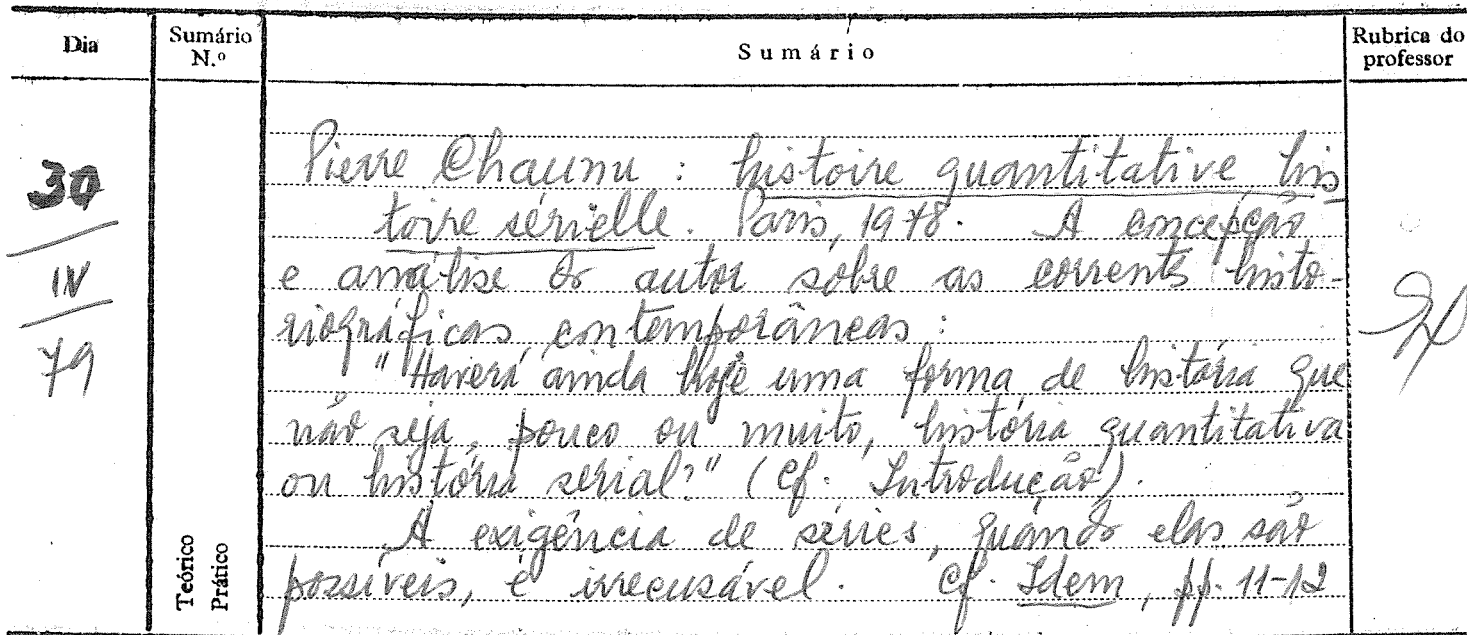 Dia
Sumário N.º
Sumário
Rubrica do professor
30
IV
79
Pierre Chaunu : histoire quantitative his
toire sérielle. Paris, 1978. A concepção
e análise do autor sobre as correntes histo-
riográficas contemporâneas:
"Haverá ainda hoje uma forma de história que
não seja, pouco ou muito, história quantitativa
ou história serial?" (Cf. Introdução).
A exigência de séries, quando elas são
possíveis, é irrecusável. Cf. Idem, pp. 11-12
Teórico
Prático